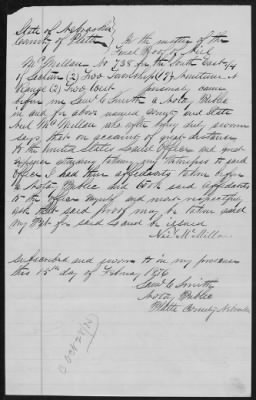 State of Nebraska
County of Platte } In the matter of the
Final Proof of Neil
McMillan No 738 for the South East 1/4
of Section (2) Two Township (17) Seventeen N
Range (2) Two West personally came
before me Saml C Smith a Notary Public
in and for above named County and State
Neil McMillan who after being duly sworn
says, that on account of great distance
to the United States Land Office and great
expense attending taking my witnesses to said
Office I had their affidavits taken before
a Notary Public and took said affidavits
to the Office myself and most respectfully
ask that said proof may be taken and
my Pat for said Land be issued
Neil McMillan
Subscribed and sworn to in my presence
this day of February 1876
Saml C Smith
Notary Public
Platte County Nebraska